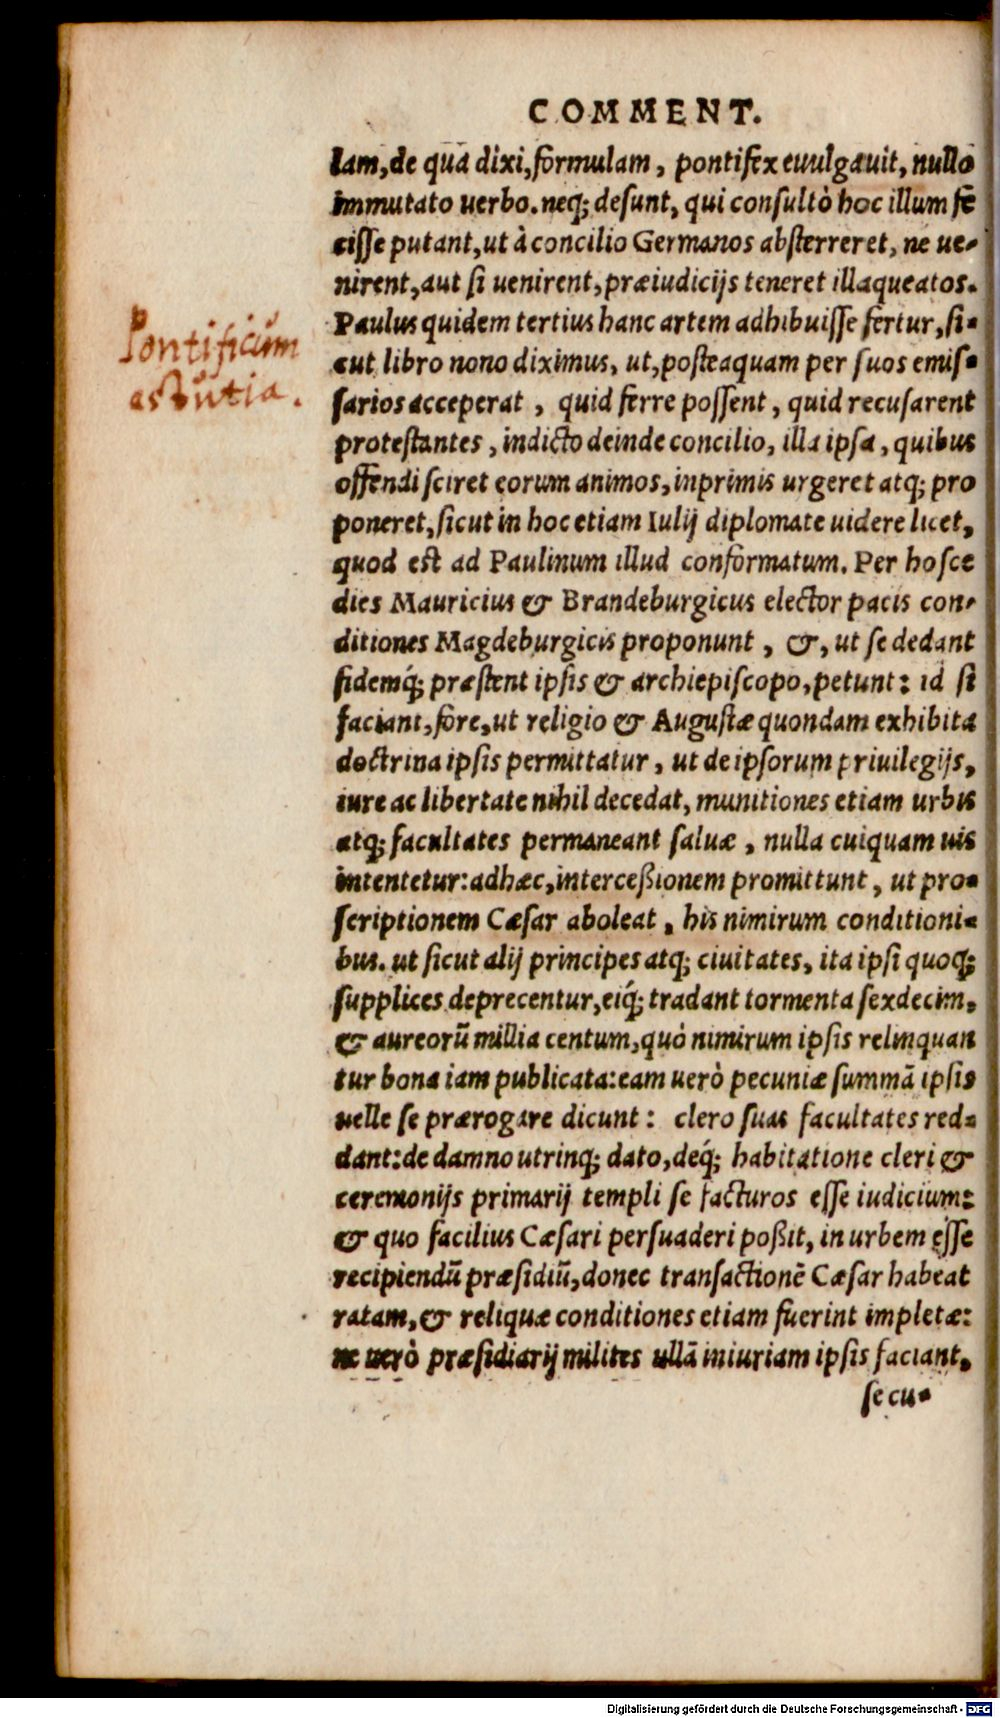 COMMENT.
lam, de qua dixi, formulam, pontifex euulgauit, nullo
immutato uerbo. neq; desunt, qui consultò hoc illum fe
cisse putant, ut à concilio Germanos absterreret, ne ue-
nirent, aut si uenirent, præiudicijs teneret illaqueatos.
Paulus quidem tertius hanc artem adhibuisse fertur, si-
cut libro nono diximus, ut, posteaquam per suos emis-
sarios acceperat, quid ferre possent, quid recusarent
protestantes, indicto deinde concilio, illa ipsa, quibus
offendi sciret eorum animos, inprimis urgeret atq; pro
poneret, sicut in hoc etiam Iulij diplomate uidere licet,
quod est ad Paulinum illud conformatum. Per hosce
dies Mauricius & Brandeburgicus elector pacis con-
ditiones Magdeburgicis proponunt, &, ut se dedant
fidemq́; præstent ipsis & archiepiscopo, petunt: id si
faciant, fore, ut religio & Augustæ quondam exhibita
doctrina ipsis permittatur, ut de ipsorum priuilegijs,
iure ac libertate nihil decedat, munitiones etiam urbis
atq; facultates permaneant saluæ, nulla cuiquam uis
intentetur: adhæc, interceßionem promittunt, ut pro-
scriptionem Cæsar aboleat, his nimirum conditioni-
bus. ut sicut alij principes atq; ciuitates, ita ipsi quoq;
supplices deprecentur, eiq́; tradant tormenta sexdecim,
& aureorũ millia centum, quò nimirum ipsis relinquan
tur bona iam publicata: eam uerò pecuniæ summã ipsis
uelle se prærogare dicunt: clero suas facultates red-
dant: de damno utrinq; dato, deq́; habitatione cleri &
ceremonijs primarij templi se facturos esse iudicium:
& quo facilius Cæsari persuaderi poßit, in urbem esse
recipiendũ præsidiũ, donec transactionẽ Cæsar habeat
ratam, & reliquæ conditiones etiam fuerint impletæ:
ne uerò præsidiarij milites ullã iniuriam ipsis faciant,
se cu-
Pontificum
astutia.
Digitalisierung gefördert durch die Deutsche Forschungsgemeinschaft - DFG